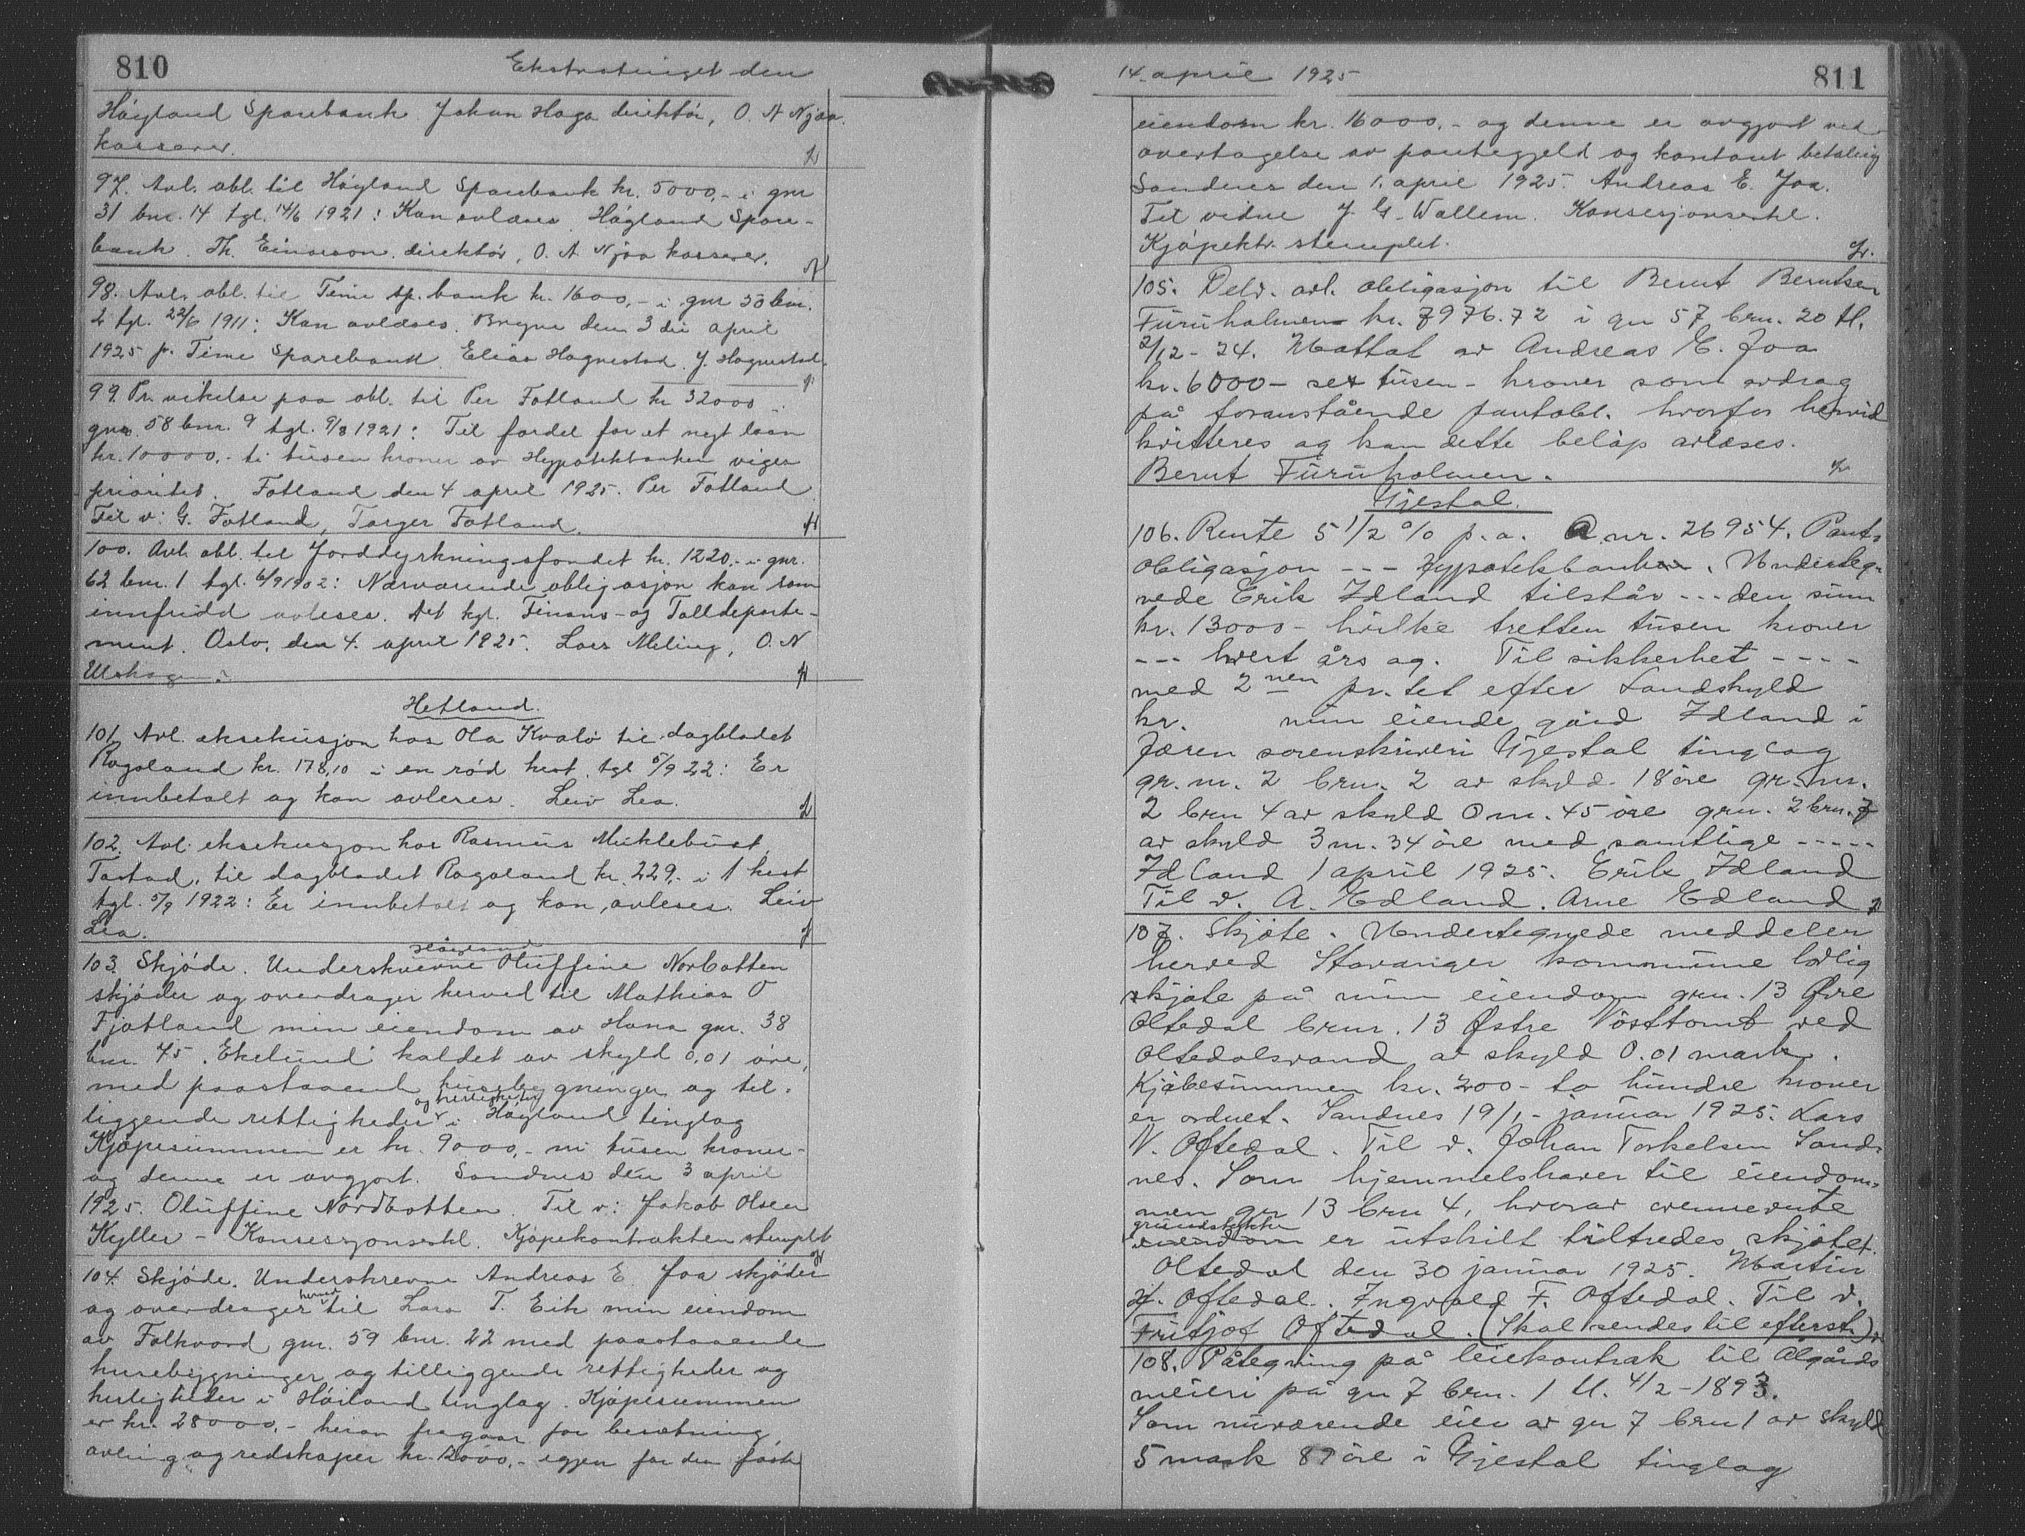 810
Ekstratinget den
Høyland Sparebank Johan Haga direktør, O. A Njaa
kasserer.
97. Avl. obl. til Høyland Sparebank kr. 5000,- i gnr
31 bnr. 14 tgl. 14/6 1921: Kan avlæses Høyland Spare-
bank. Th. Einarson direktør, O. A Njaa kasserer.
98. Avl. obl. til Time sp. bank kr. 1600,- i gnr 53 bnr.
2 tgl. 22/6 1911: Kan avlæses. Bryne den 3die april
1925 p. Time Sparebank Elias Hognestad J. Hognestad
99. Pr. vikelse paa obl. til Per Fotland kr 32000 i
gnr. 58 bnr. 9 tgl. 9/8 1921: Til fordel for et nyt laan
kr. 10000,- ti tusen kroner av Hypotekbanken viger
prioritet. Fotland den 4 april 1925. Per Fotland
Til v: G. Fotland, Torger Fotland.
100. Avl. obl. til Jorddyrkningsfondet kr. 1220,- i gnr.
62 bnr. 1 tgl. 6/9 1902: Nærværende obligasjon kan som
innfridd avleses. Det kgl. Finans- og Tolldeparte-
ment. Oslo, den 4. april 1925. Lars Meling, O. N
Ulshagen.
Hetland.
101. Avl. eksekusjon hos Ola Kvalø til dagbladet
Rogaland kr. 178,10 i en rød hest tgl 5/9 22: Er
innbetalt og kan avleses. Leiv Lea.
102. Avl. eksekusjon hos Rasmus Muklebust
Tastad, til dagbladet Rogaland kr. 229,- i 1 hest
tgl. 5/9 1922: Er innbetalt og kan avleses. Leiv
Lea.
Høyland
103. Skjøde. Underskrevne Oluffine Norbotten
skjøder og overdrager herved til Mathias O
Fjotland min eiendom av Hana gnr. 38
bnr. 45 "Ekelund" kaldet av skyld 0,01 øre,
med paastaaende husebygninger og til-
og herligheder
liggende rettigheder i Høyland tinglag
Kjøpesummen er kr. 9000,- ni tusen kroner-
og denne er avgjort. Sandnes den 3 april
1925. Oluffine Nordbotten. Til v: Jakob Olsen
Kyller - Konsesjonserkl. Kjøpekontrakten stemplet
104. Skjøde. Underskrevne Andreas E. Joa skjøder
herved
og overdrager til Lars T. Eik min eiendom
av Folkvord gnr. 59 bnr. 22 med paastaaende
husebygninger og tilliggende rettigheder og
herligheder i Høiland tinglag. Kjøpesummen
er kr. 28000,- herav fragaar for besætning,
avling og redskaper kr. 12000,- igjen for den faste
14. april 1925
811
eiendom kr. 16000,- og denne er avgjort ved
overtagelse av pantegjeld og kontant betaling
Sandnes den 1. april 1925. Andreas E. Joa.
Til vidne J. G. Wallem. Konsesjonserkl.
Kjøpektr. stemplet.
105. Delv. avl. obligasjon til Bernt Berntsen
Furuholmen kr. 7976.72 i gn 57 brn. 20 tl.
2/12 - 24. Mottat av Andreas E. Joa
kr. 6000- sex tusen - kroner som avdrag
på foranstående pantobl. hvorfor herved
kvitteres og kan dette beløp avlæses.
Bernt Furuholmen.
Gjestal.
106. Rente 5 1/2 % p.a. A nr. 26954. Pant-
obligasjon --- Hypotekbanken. Underteg-
nede Erik Idland tilstår --- den sum
kr. 13000- hvilke tretten tusen kroner
--- hvert års og. Til sikkerhet ----
med 2nen pr.tet efter Landskyld
kr. min eiende gård Idland i
Jæren sorenskriveri Gjestal tinglag
gr. nr. 2 brn. 2 av skyld 18 øre gr. nr.
2 brn 4 av skyld 0 m. 45 øre grn. 2 brn. 7
av skyld 3 m. 34 øre med samtlige -----
Idland 1 april 1925. Erik Idland
Til v. A. Edland. Arne Edland
107. Skjøte. Undertegnede meddeler
herved Stavanger kommune lovlig
skjøte på min eiendom grn. 13 Øvre
Oltedal brnr. 13 Østre Nosttomt ved
Oltedalsvand av skyld 0.01 mark.
Kjøbesummen kr. 200- to hundre kroner
er ordnet. Sandnes 19/1 - januar 1925. Lars
N. Oftedal. Til v. Johan Torkelsen Sand-
nes. Som hjemmelshaver til eiendom-
men gn 13 brn 4, hvorav ovennevnte
grundstykke
eiendom er utskilt tiltredes skjøtet.
Oltedal den 30 januar 1925. Martin
Oftedal. Ingvald F. Oftedal. Til v.
Fritjof Oftedal. (Skal sendes til efterst.)
108. Påtegning på leiekontrak til Ålgårds
meieri på gn 7 brn. 1 tl. 4/2 - 1893.
Som nuværende eier av gn 7 brn 1 av skyld
5 mark 87 øre i Gjestal tinglag